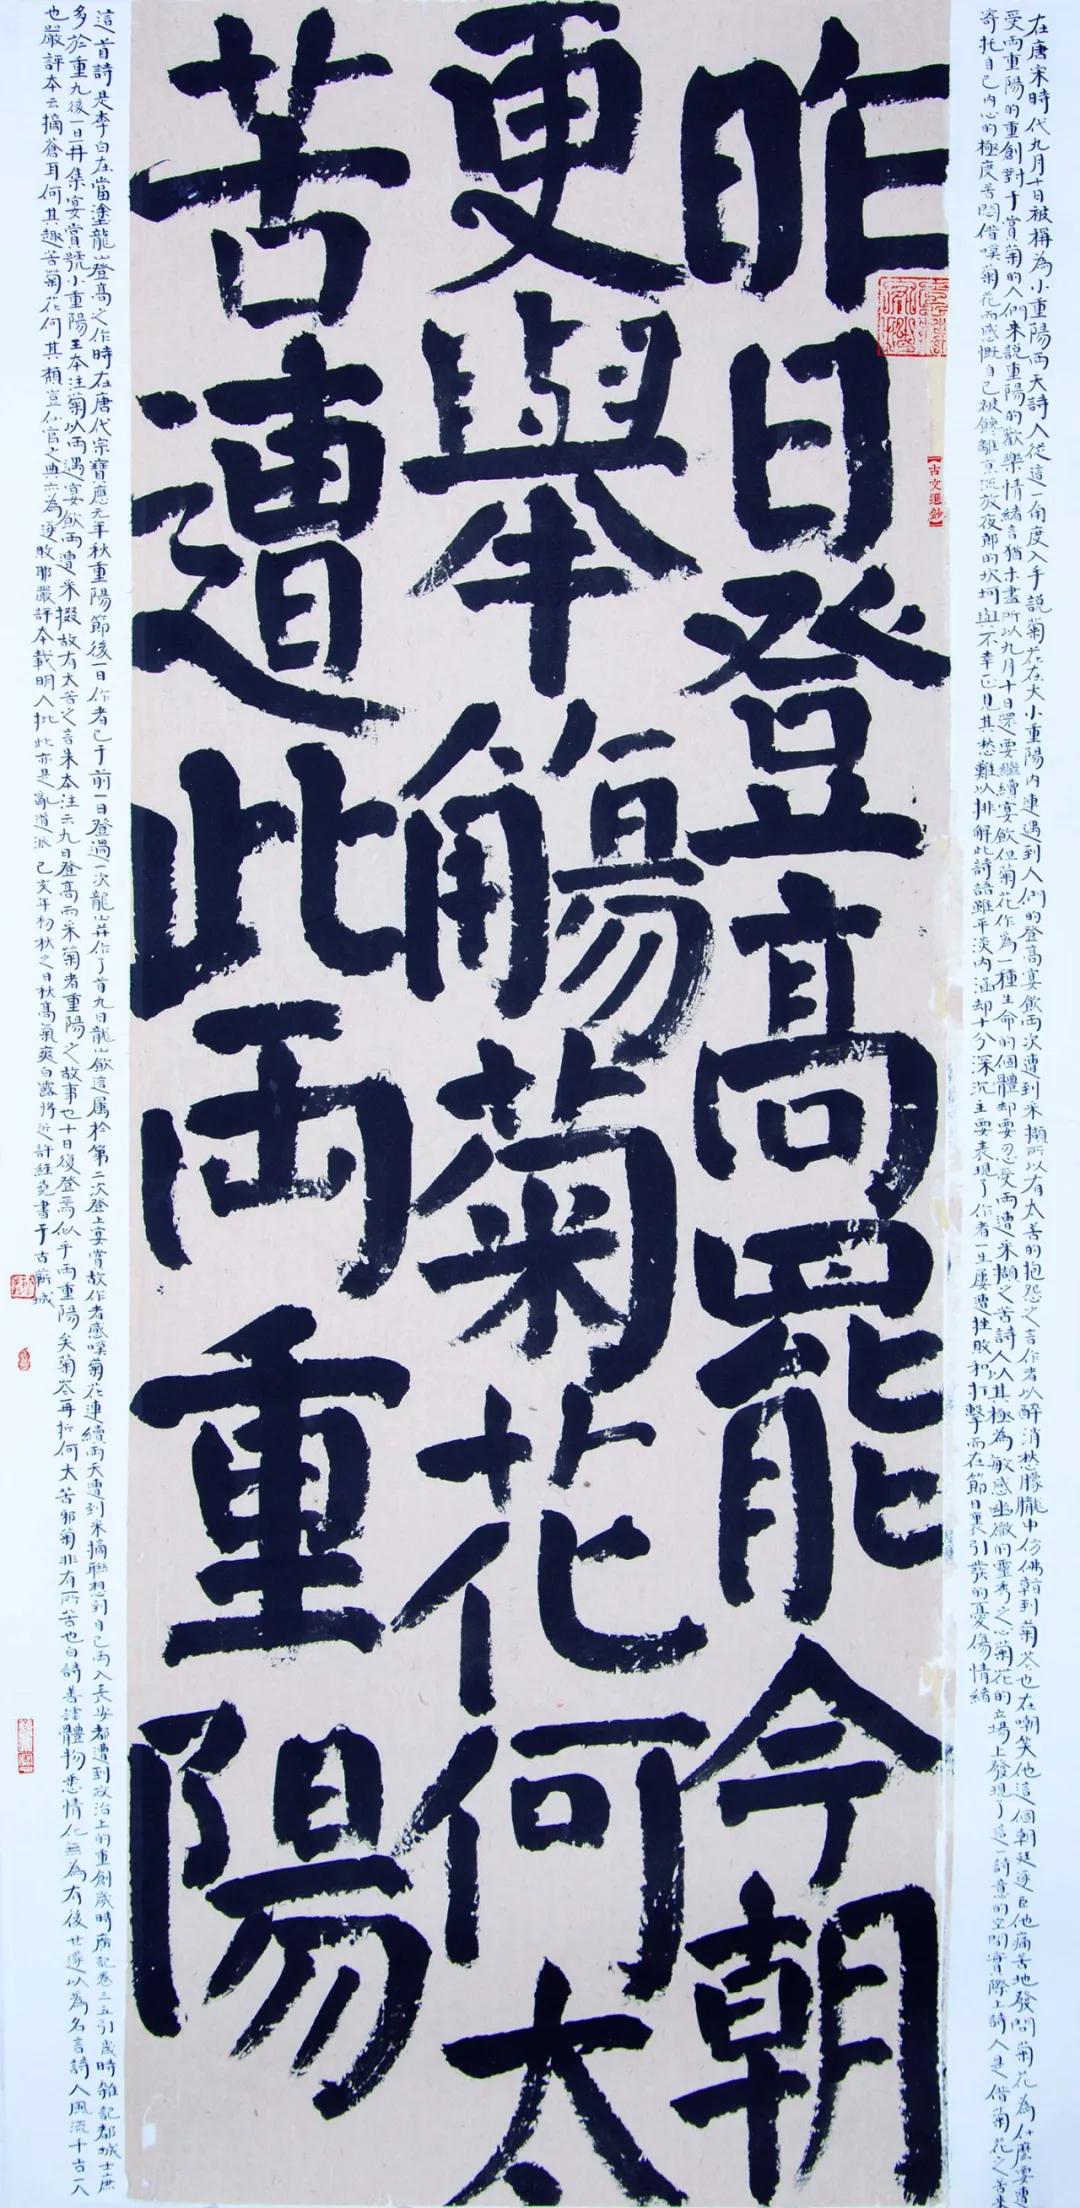 在唐宋時代九月十日被稱為小重陽兩天詩人從這一角度入手說菊花在大小重陽內連遇到人們的登高宴飲兩次遭到采擷所以有太苦的抱怨之言作者以醉消愁朦朧中仿佛到菊花也在嘲笑他這個朝廷逐臣他痛苦地發問菊花為什麼要遭
受兩重陽的重創對于賞菊的人們來說重陽的歡樂情緒言猶未盡所以九月十日還要繼續宴飲但菊花作為一種生命的個體却要忍受兩遭采擷之苦詩人以其極為敏感幽微的靈秀之心菊花的立場上發現了這一詩意的空間實際上詩人是借菊花之苦來
寄托自己內心的極度苦悶借嘆菊花而感慨自己被饞離京流放夜郎的坎坷與不幸正見其愁難以排解此詩語雖平淡內涵却十分深沉主要表現了作者一生屢遭挫敗和打擊而在節日裏引發的憂傷情緒
【古文選鈔】
昨日登高罷今朝
更舉觴菊花何太
苦遭此兩重陽
這首詩是李白在當塗龍山登高之作時在唐代宗寶應元年秋重陽節後一日作者已于前一日登過一次龍山并作了首九日龍山飲這屬於第二次登上宴賞故作者感嘆菊花連續兩天遭到采摘聯想到自己兩入長安都遭到政治上的重創歲時廣記卷三五引歲時雜記都城士庶
多於重九後一日再集宴賞號小重陽王本注菊以兩遇宴飲兩遭采掇故有太苦之言朱本注云九日登高而采菊者重陽之故事也十日復登焉似乎兩重陽矣菊花再折何太苦邪菊非有所苦也白詩善諸體物悉情化無為有後世遂以為名言詩人風流千古一人
也嚴評本云摘蒼耳何其趣苦菊花何其顇豈仙官之典亦為逐敗耶嚴評本載明人批此亦是亂道派己亥年初秋之日秋高氣爽白露將近許經堯書于古蘄城